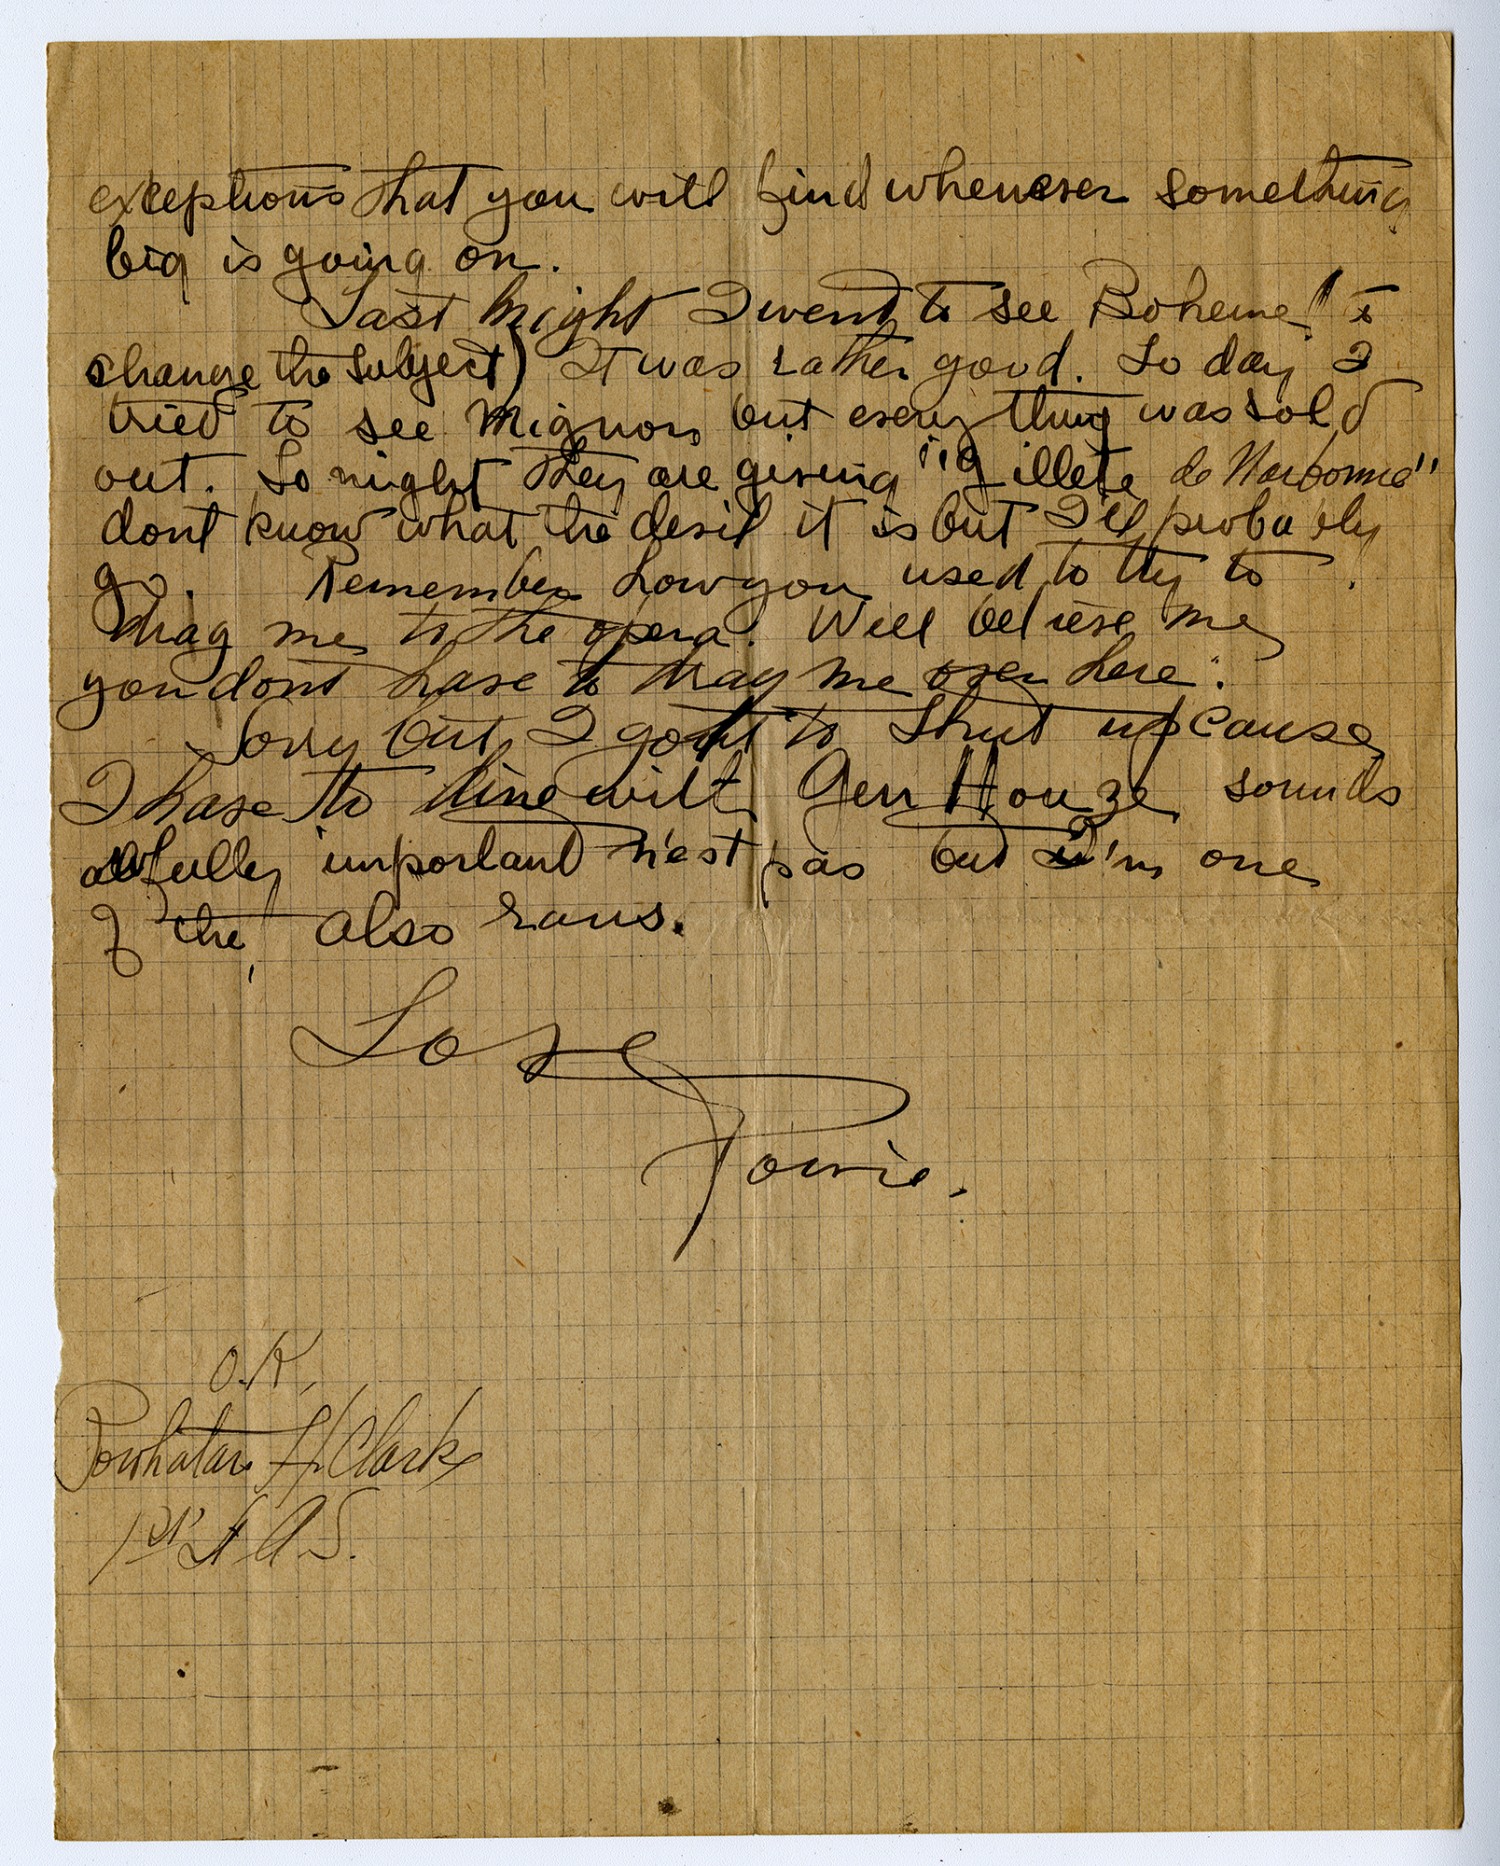 exceptions that you will find whenever something
big is going on.
Last night I went to see Boheme (to
change the subject) It was rather good. To day I
tried to see Mignon but everything was sold
out. To night they are giving "Gillete de Narbonne"
dont know what the devil it is but I'll probably
go. Remember how you used to try to
drag me to the opera. Well believe me
you dont have to drag me over here.
Sorry but I gotta to shut up cause
I have to dine with Gen Houze sounds
awfully important n'est pas but I'm one
of the also rans.
Love
Powie.
O.K.
Powhatan H Clarke
1st Lt A.S.